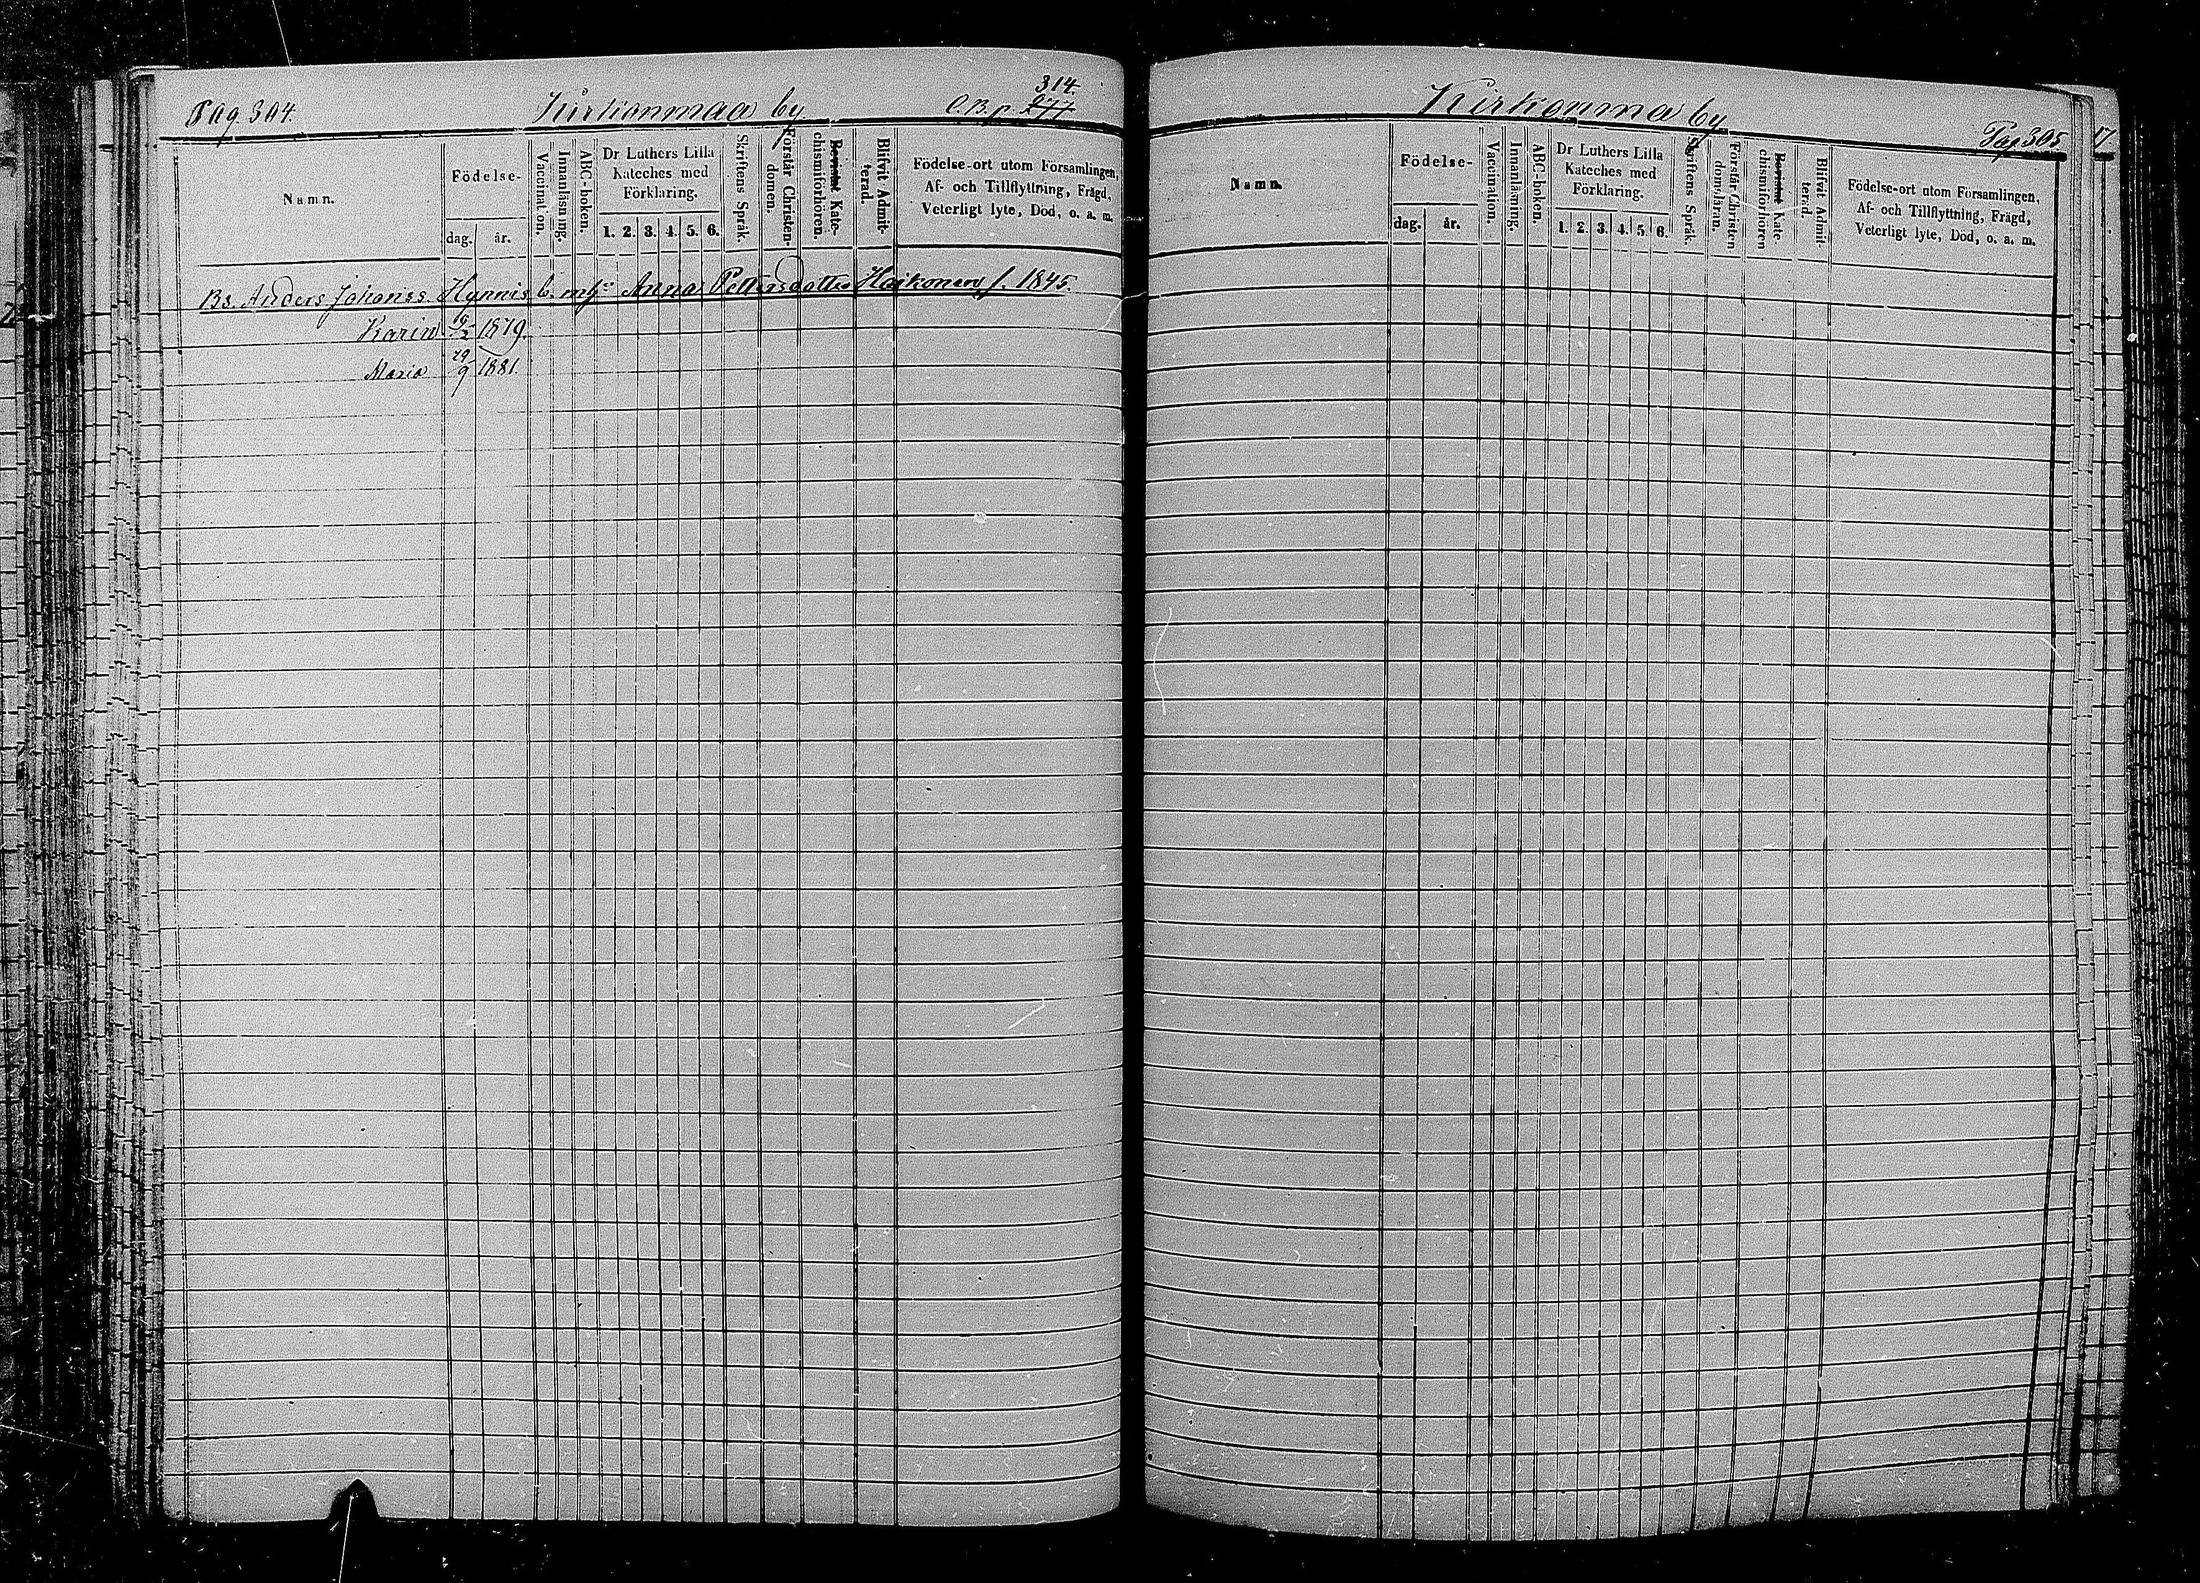 Pag. 304. Kirkonmaa by C.B.p. 277 314.
Namn.
Födelse-
dag. år.
Vaccination.
Innanläsning.
ABC-boken.
Dr Luthers Lilla
Kateches med
Förklaring.
1. 2. 3. 4. 5. 6.
Skriftens Språk.
Förstår Christen-
domen.
Bevistat Kate-
chismiförhören.
Blifvit Admit-
terad.
Födelse-ort utom Församlingen,
Af- och Tillflyttning, Frägd,
Veterligt lyte, Död, o. a. m.
Bs. Anders Johanss. Hynnis b. m. h:o Anna Pettersdotter Haikonen f. 1845.
Karin 19/2 1879.
Maria 29/9 1881.
Kirkonma by
Pag 305
17
Namn.
Födelse-
dag. år.
Vaccination.
Innanläsning.
ABC-boken.
Dr Luthers Lilla
Kateches med
Förklaring.
1. 2. 3. 4. 5. 6.
Skriftens Språk.
Förstår Christen
domsläran.
Bevistat Kate
chismiförhören
Blifvit Admit
terad.
Födelse-ort utom Församlingen,
Af- och Tillflyttning, Frägd,
Veterligt lyte, Död, o. a. m.